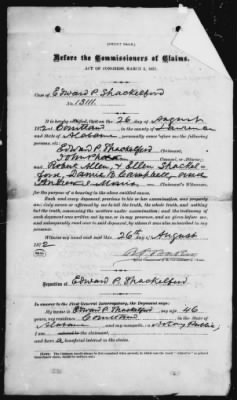 [FRONT PAGE.]
Before the Commissioners of Claims.
ACT OF CONGRESS, MARCH 3, 1871.
Case of Edward P. Shackelford
No. 13111.
It is hereby certified, that on the 26 day of August
1872, at Courtland in the county of Lawrence
and State of Alabama personally came before me the following
persons, viz:
Edward P. Shackelford Claimant,
John Phelan Counsel, or Attorney,
and Robert Allen, Ellen Shackel-
ford, Daniel B. Campbell,
Claimant's Witnesses,
for the purpose of a hearing in the above entitled cause.
Each and every deponent, previous to his or her examination, was properly and
duly sworn or affirmed by me to tell the truth, the whole truth, and nothing
but the truth, concerning the matters under examination; and the testimony of
each deponent was written out by me, or in my presence, and as given before me,
and subsequently read over to each deponent, by whom it was also signed in my
presence.
Witness my hand and seal this 26th day of August
1872
Deposition of Edward P. Shackelford
In answer to the First General Interrogatory, the Deponent says:
My name is Edward P. Shackelford my age 46
years, my residence Courtland in the State of
Alabama and my occupation a Notary Public
I am the claimant,
and have a beneficial interest in the claim.